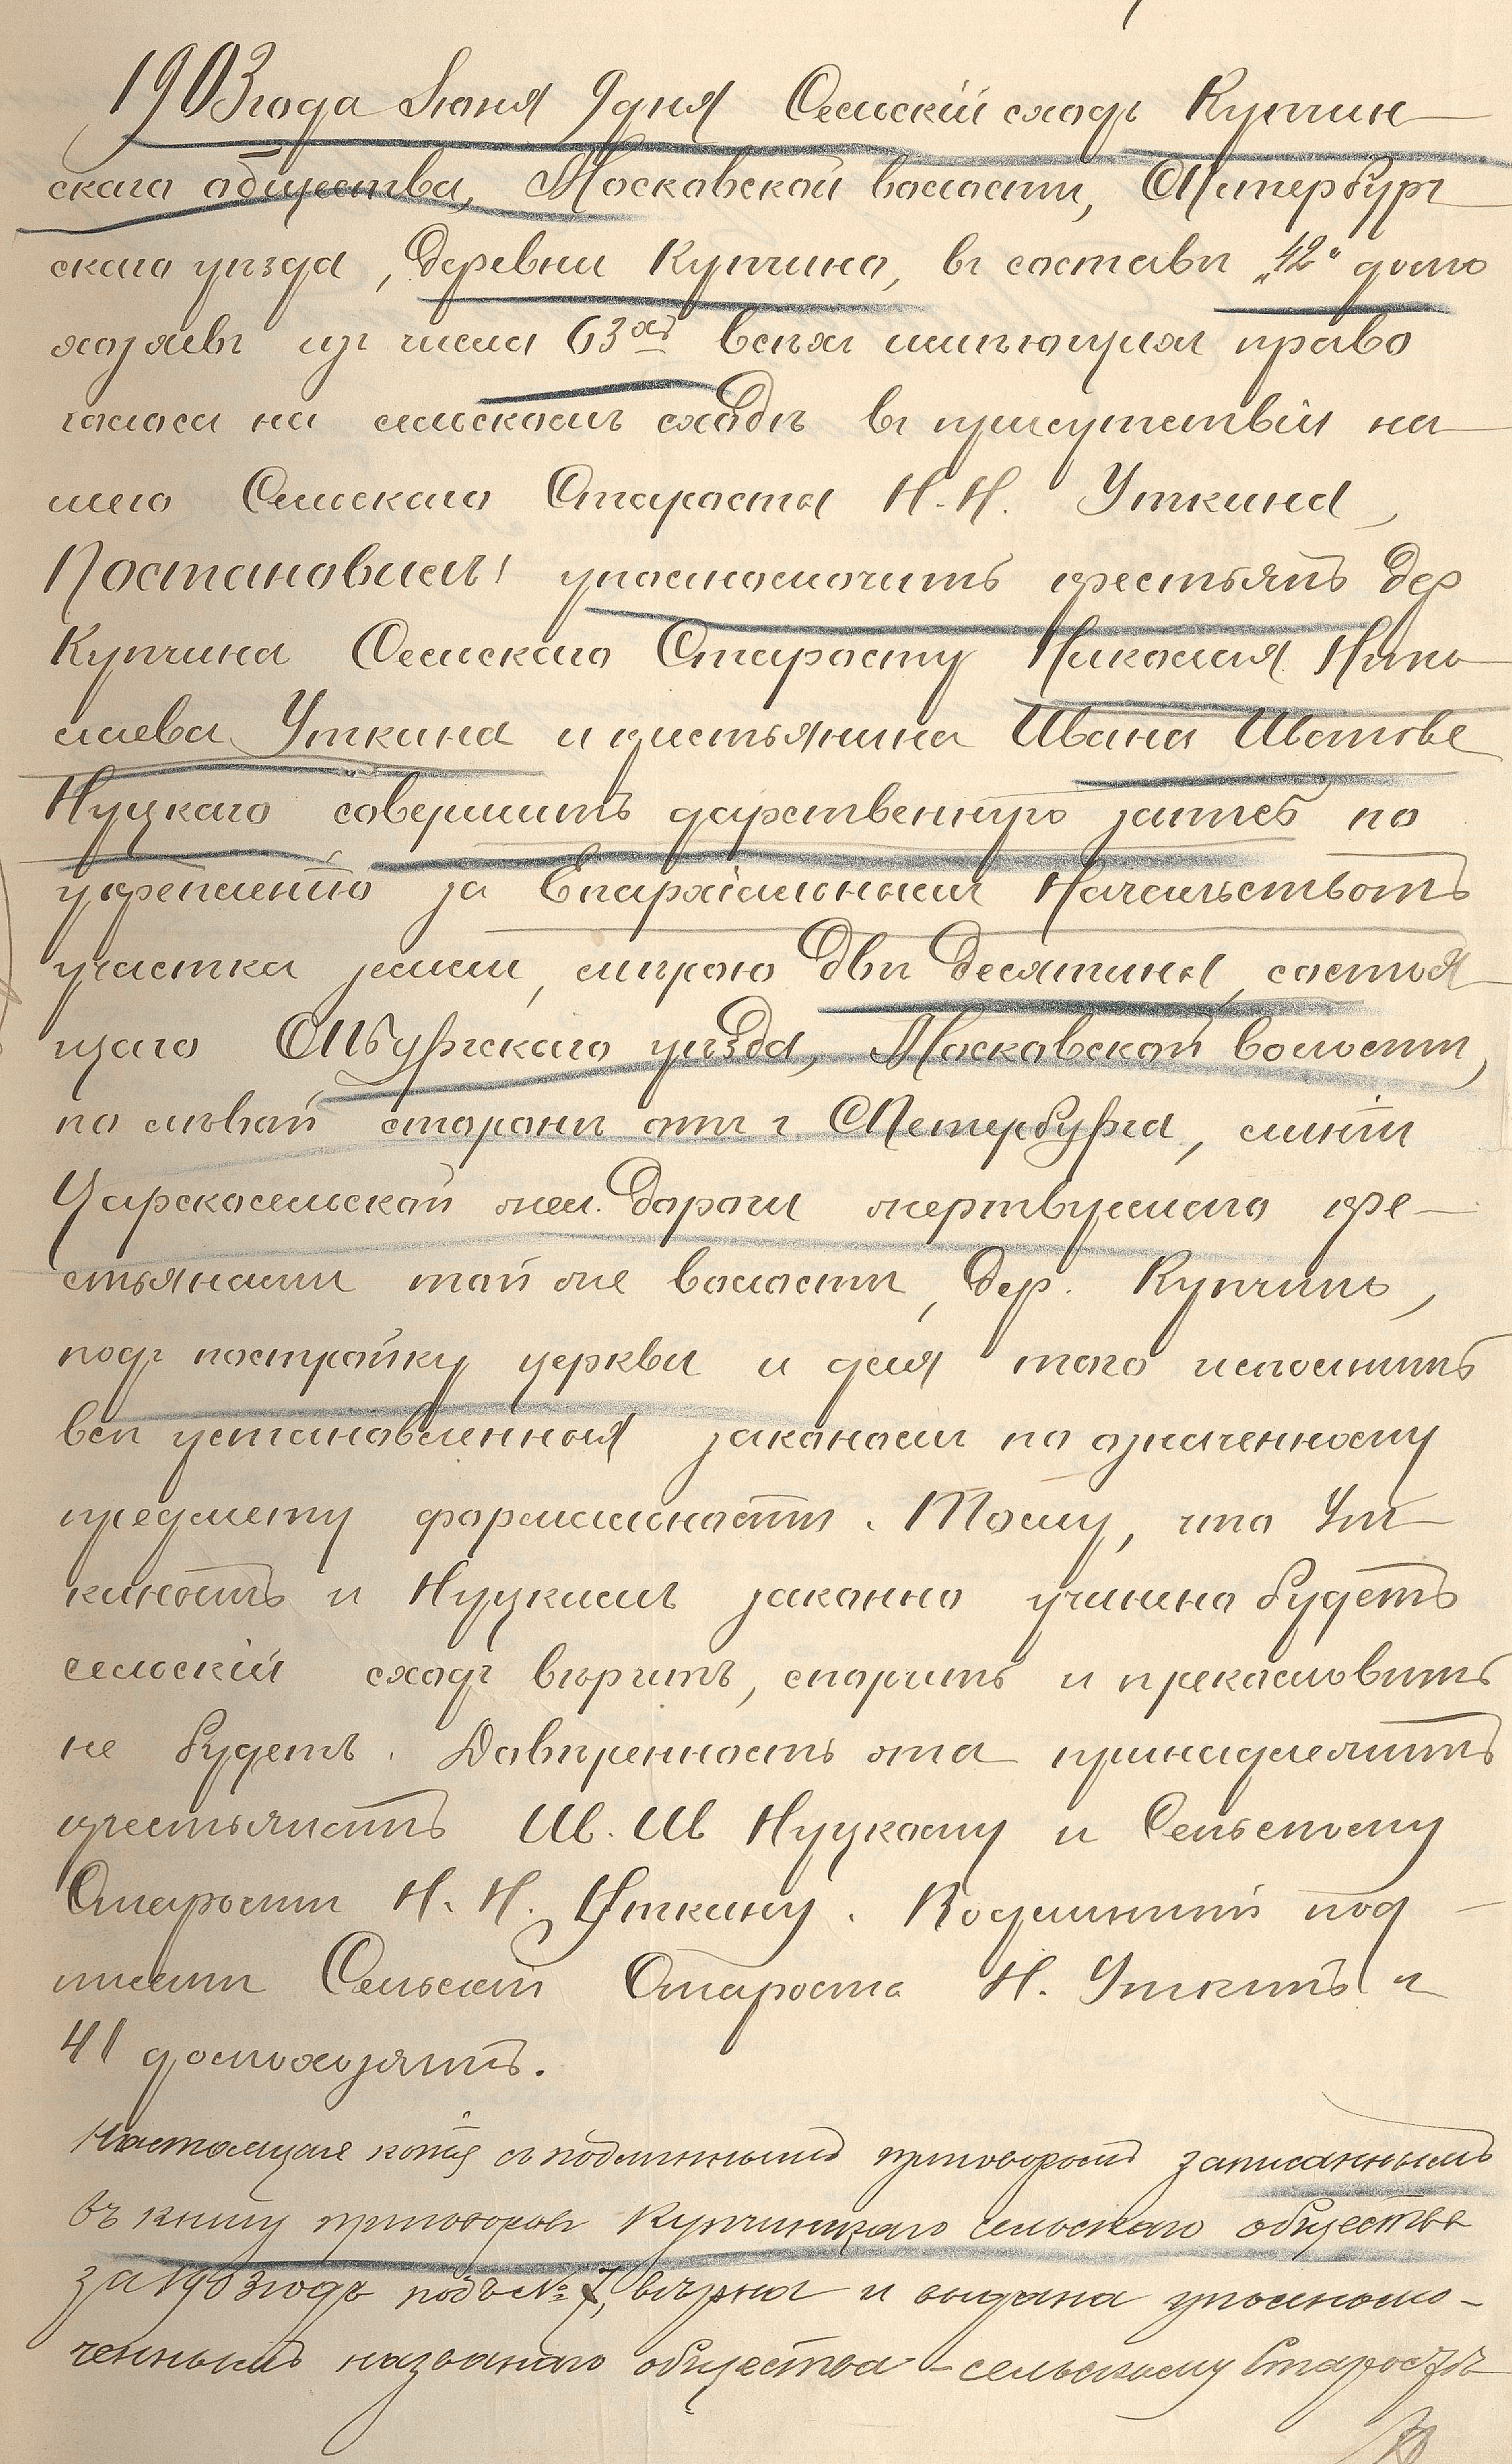 1903 года Іюня 9 дня Сельскій сходъ Купчин-
скаго общества, Московской волости, СПетербург-
скаго уѣзда, деревни Купчино, въ составѣ „42" домо
хозяевъ изъ числа 63хъ всѣхъ имѣющихъ право
голоса на сельскомъ сходѣ въ присутствіи на-
шего Сельскаго Старосты Н. Н. Уткина,
Постановилъ: уполномочить крестьянъ дер
Купчина Сельскаго Старосту Николая Нико-
лаева Уткина и крестьянина Ивана Иванове
Нуцкаго совершить дарственную запись по
укрепленію за Епархіальнымъ Начальствомъ
участка земли, мѣрою двѣ десятины, состоя-
щаго СПБургскаго уѣзда, Московской волости,
по лѣвой стороне отъ г. СПетербурга, линіи
Царскосельской жел. дороги жертвуемаго кре-
стьянами той же волости, дер. Купчино,
подъ постройку церкви и для того исполнить
всѣ установленныя закономъ по означенному
предмету формальности. Тому, что Ут-
кинымъ и Нуцкимъ законно учинено будетъ
сельскій сходъ вѣритъ, споритъ и прекословить
не будетъ. Довѣренность эта принадлежитъ
крестьянамъ Ив. Ив Нуцкому и Сельскому
Старостѣ Н. Н. Уткину. Подлинный под-
писали Сельскій Староста Н. Уткинъ и
41 домохозяинъ.
Настоящая копія съ подлиннымъ приговоромъ записаннымъ
въ книгу приговоровъ Купчинскаго сельскаго общества
за 1903 годъ подъ № 7, вѣрна и выдана уполномо-
ченнымъ названнаго общества - сельскому Старостѣ